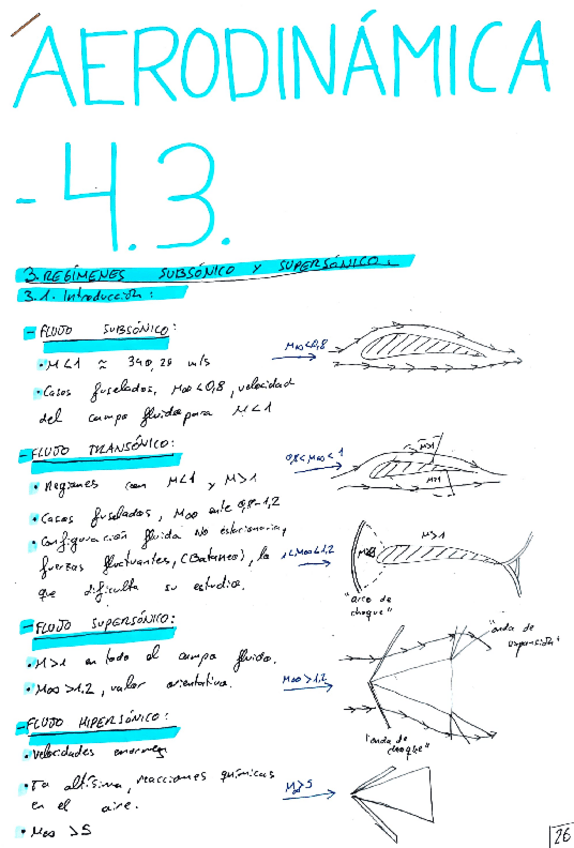 AERODINÁMICA
-4.3.
3. REGÍMENES SUBSÓNICO Y SUPERSÓNICO.
3.1. Introducción:
- FLUJO SUBSÓNICO:
• M<1 ≈ 340,29 m/s
• Casos fuselados, M∞<0,8, velocidad
del campo fluido para M<1
M∞<0,8
- FLUJO TRANSÓNICO:
• Regiones con M<1 y M>1
• Casos fuselados, M∞ ente 0,8-1,2
• Configuración fluida no estacionaria,
fuerzas fluctuantes, (Bataneo), lo
que dificulta su estudio.
0,8<M∞<1
M>1
M>1
1<M∞<1,2
M>1
"arco de
choque"
- FLUJO SUPERSÓNICO:
• M>1 en todo el campo fluido.
• M∞>1,2, valor orientativo.
M∞>1,2
"onda de
expansión"
"onda de
choque"
- FLUJO HIPERSÓNICO:
• Velocidades enormes
• Ta altísima, reacciones químicas
en el aire.
• M∞ >5
M∞>5
26